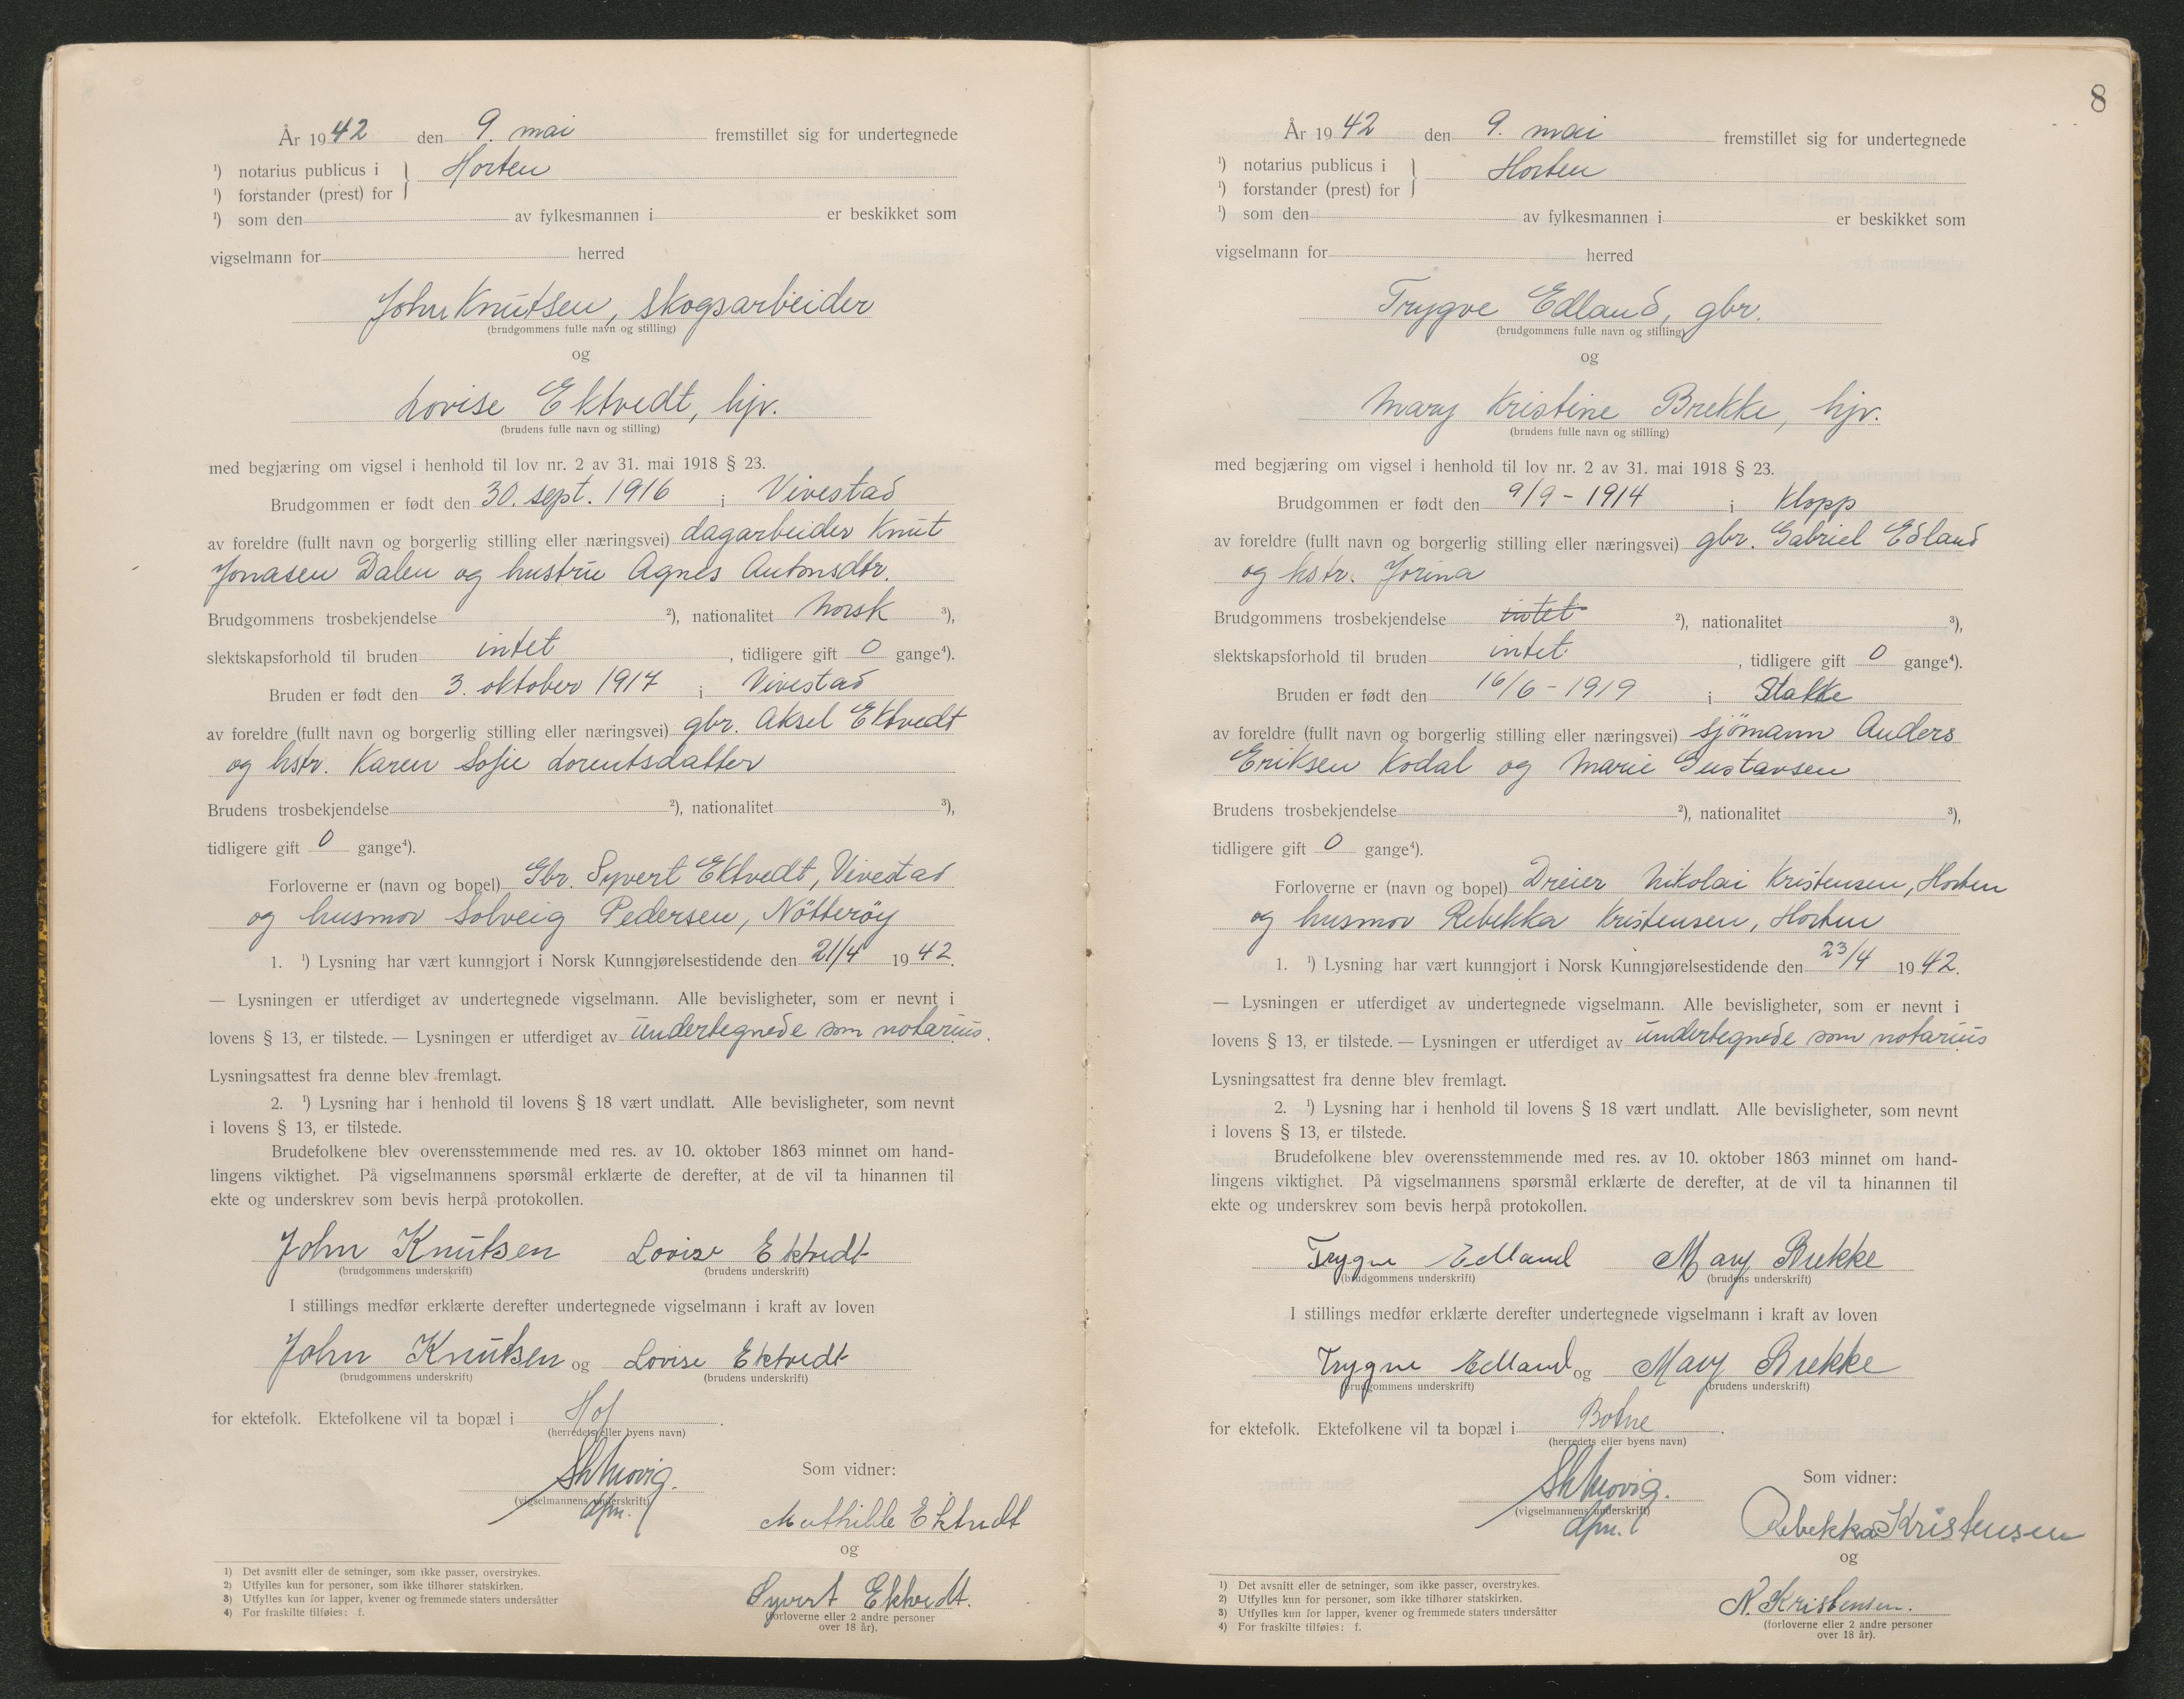 År 1942 den 9. mai fremstillet sig for undertegnede
¹) notarius publicus i } Horten
¹) forstander (prest) for
¹) som den av fylkesmannen i er beskikket som
vigselmann for herred
John Knutsen, skogsarbeider
(brudgommens fulle navn og stilling)
og
Lovise Ektvedt, hjv.
(brudens fulle navn og stilling)
med begjæring om vigsel i henhold til lov nr. 2 av 31. mai 1918 § 23.
Brudgommen er født den 30. sept. 1916 i Vivestad
av foreldre (fullt navn og borgerlig stilling eller næringsvei) dagarbeider Knut
Jonasen Dalen og hustru Agnes Antonsdtr.
Brudgommens trosbekjendelse ²), nationalitet Norsk ³),
slektskapsforhold til bruden intet, tidligere gift 0 gange⁴).
Bruden er født den 3. oktober 1917 i Vivestad
av foreldre (fullt navn og borgerlig stilling eller næringsvei) gbr. Aksel Ektvedt
og hstr. Karen Sofie Lorentsdatter
Brudens trosbekjendelse ²), nationalitet ³),
tidligere gift 0 gange⁴).
Forloverne er (navn og bopel) Gbr. Syvert Ektvedt, Vivestad
og husmor Solveig Pedersen, Nötteröy
1. ¹) Lysning har vært kunngjort i Norsk Kunngjørelsestidende den 21/4 1942.
— Lysningen er utferdiget av undertegnede vigselmann. Alle bevisligheter, som er nevnt i
lovens § 13, er tilstede. — Lysningen er utferdiget av undertegnede som notarius.
Lysningsattest fra denne blev fremlagt.
2. ¹) Lysning har i henhold til lovens § 18 vært undlatt. Alle bevisligheter, som nevnt
i lovens § 13, er tilstede.
Brudefolkene blev overensstemmende med res. av 10. oktober 1863 minnet om hand-
lingens viktighet. På vigselmannens spørsmål erklærte de derefter, at de vil ta hinannen til
ekte og underskrev som bevis herpå protokollen.
John Knutsen Lovise Ektvedt
(brudgommens underskrift) (brudens underskrift)
I stillings medfør erklærte derefter undertegnede vigselmann i kraft av loven
John Knutsen og Lovise Ektvedt
(brudgommens underskrift) (brudens underskrift)
for ektefolk. Ektefolkene vil ta bopæl i Hof.
(herredets eller byens navn)
Som vidner:
(vigselmannens underskrift)
dfm.
Mathilde Ektvedt
og
Syvert Ektvedt.
(forloverne eller 2 andre personer
over 18 år).
1) Det avsnitt eller de setninger, som ikke passer, overstrykes.
2) Utfylles kun for personer, som ikke tilhører statskirken.
3) Utfylles kun for lapper, kvener og fremmede staters undersåtter
4) For fraskilte tilføies: f.
8
År 1942 den 9. mai fremstillet sig for undertegnede
¹) notarius publicus i } Horten
¹) forstander (prest) for
¹) som den av fylkesmannen i er beskikket som
vigselmann for herred
Trygve Edland, gbr.
(brudgommens fulle navn og stilling)
og
Mary Kristine Brekke, hjv.
(brudens fulle navn og stilling)
med begjæring om vigsel i henhold til lov nr. 2 av 31. mai 1918 § 23.
Brudgommen er født den 9/9 - 1914 i Klopp
av foreldre (fullt navn og borgerlig stilling eller næringsvei) gbr. Gabriel Edland
og hstr. Jorina
Brudgommens trosbekjendelse intet ²), nationalitet ³),
slektskapsforhold til bruden intet, tidligere gift 0 gange⁴).
Bruden er født den 16/6 - 1919 i Stakke
av foreldre (fullt navn og borgerlig stilling eller næringsvei) sjömann Anders
Eriksen Kodal og Marie Gustavsen
Brudens trosbekjendelse ²), nationalitet ³),
tidligere gift 0 gange⁴).
Forloverne er (navn og bopel) Dreier Nikolai Kristensen, Horten
og husmor Rebekka Kristensen, Horten
1. ¹) Lysning har vært kunngjort i Norsk Kunngjørelsestidende den 23/4 1942.
— Lysningen er utferdiget av undertegnede vigselmann. Alle bevisligheter, som er nevnt i
lovens § 13, er tilstede. — Lysningen er utferdiget av undertegnede som notarius
Lysningsattest fra denne blev fremlagt.
2. ¹) Lysning har i henhold til lovens § 18 vært undlatt. Alle bevisligheter, som nevnt
i lovens § 13, er tilstede.
Brudefolkene blev overensstemmende med res. av 10. oktober 1863 minnet om hand-
lingens viktighet. På vigselmannens spørsmål erklærte de derefter, at de vil ta hinannen til
ekte og underskrev som bevis herpå protokollen.
Trygve Edland Mary Brekke
(brudgommens underskrift) (brudens underskrift)
I stillings medfør erklærte derefter undertegnede vigselmann i kraft av loven
Trygve Edland og Mary Brekke
(brudgommens underskrift) (brudens underskrift)
for ektefolk. Ektefolkene vil ta bopæl i Botne.
(herredets eller byens navn)
Som vidner:
(vigselmannens underskrift)
dfm.
Rebekka Kristensen
og
N. Kristensen.
(forloverne eller 2 andre personer
over 18 år).
1) Det avsnitt eller de setninger, som ikke passer, overstrykes.
2) Utfylles kun for personer, som ikke tilhører statskirken.
3) Utfylles kun for lapper, kvener og fremmede staters undersåtter
4) For fraskilte tilføies: f.